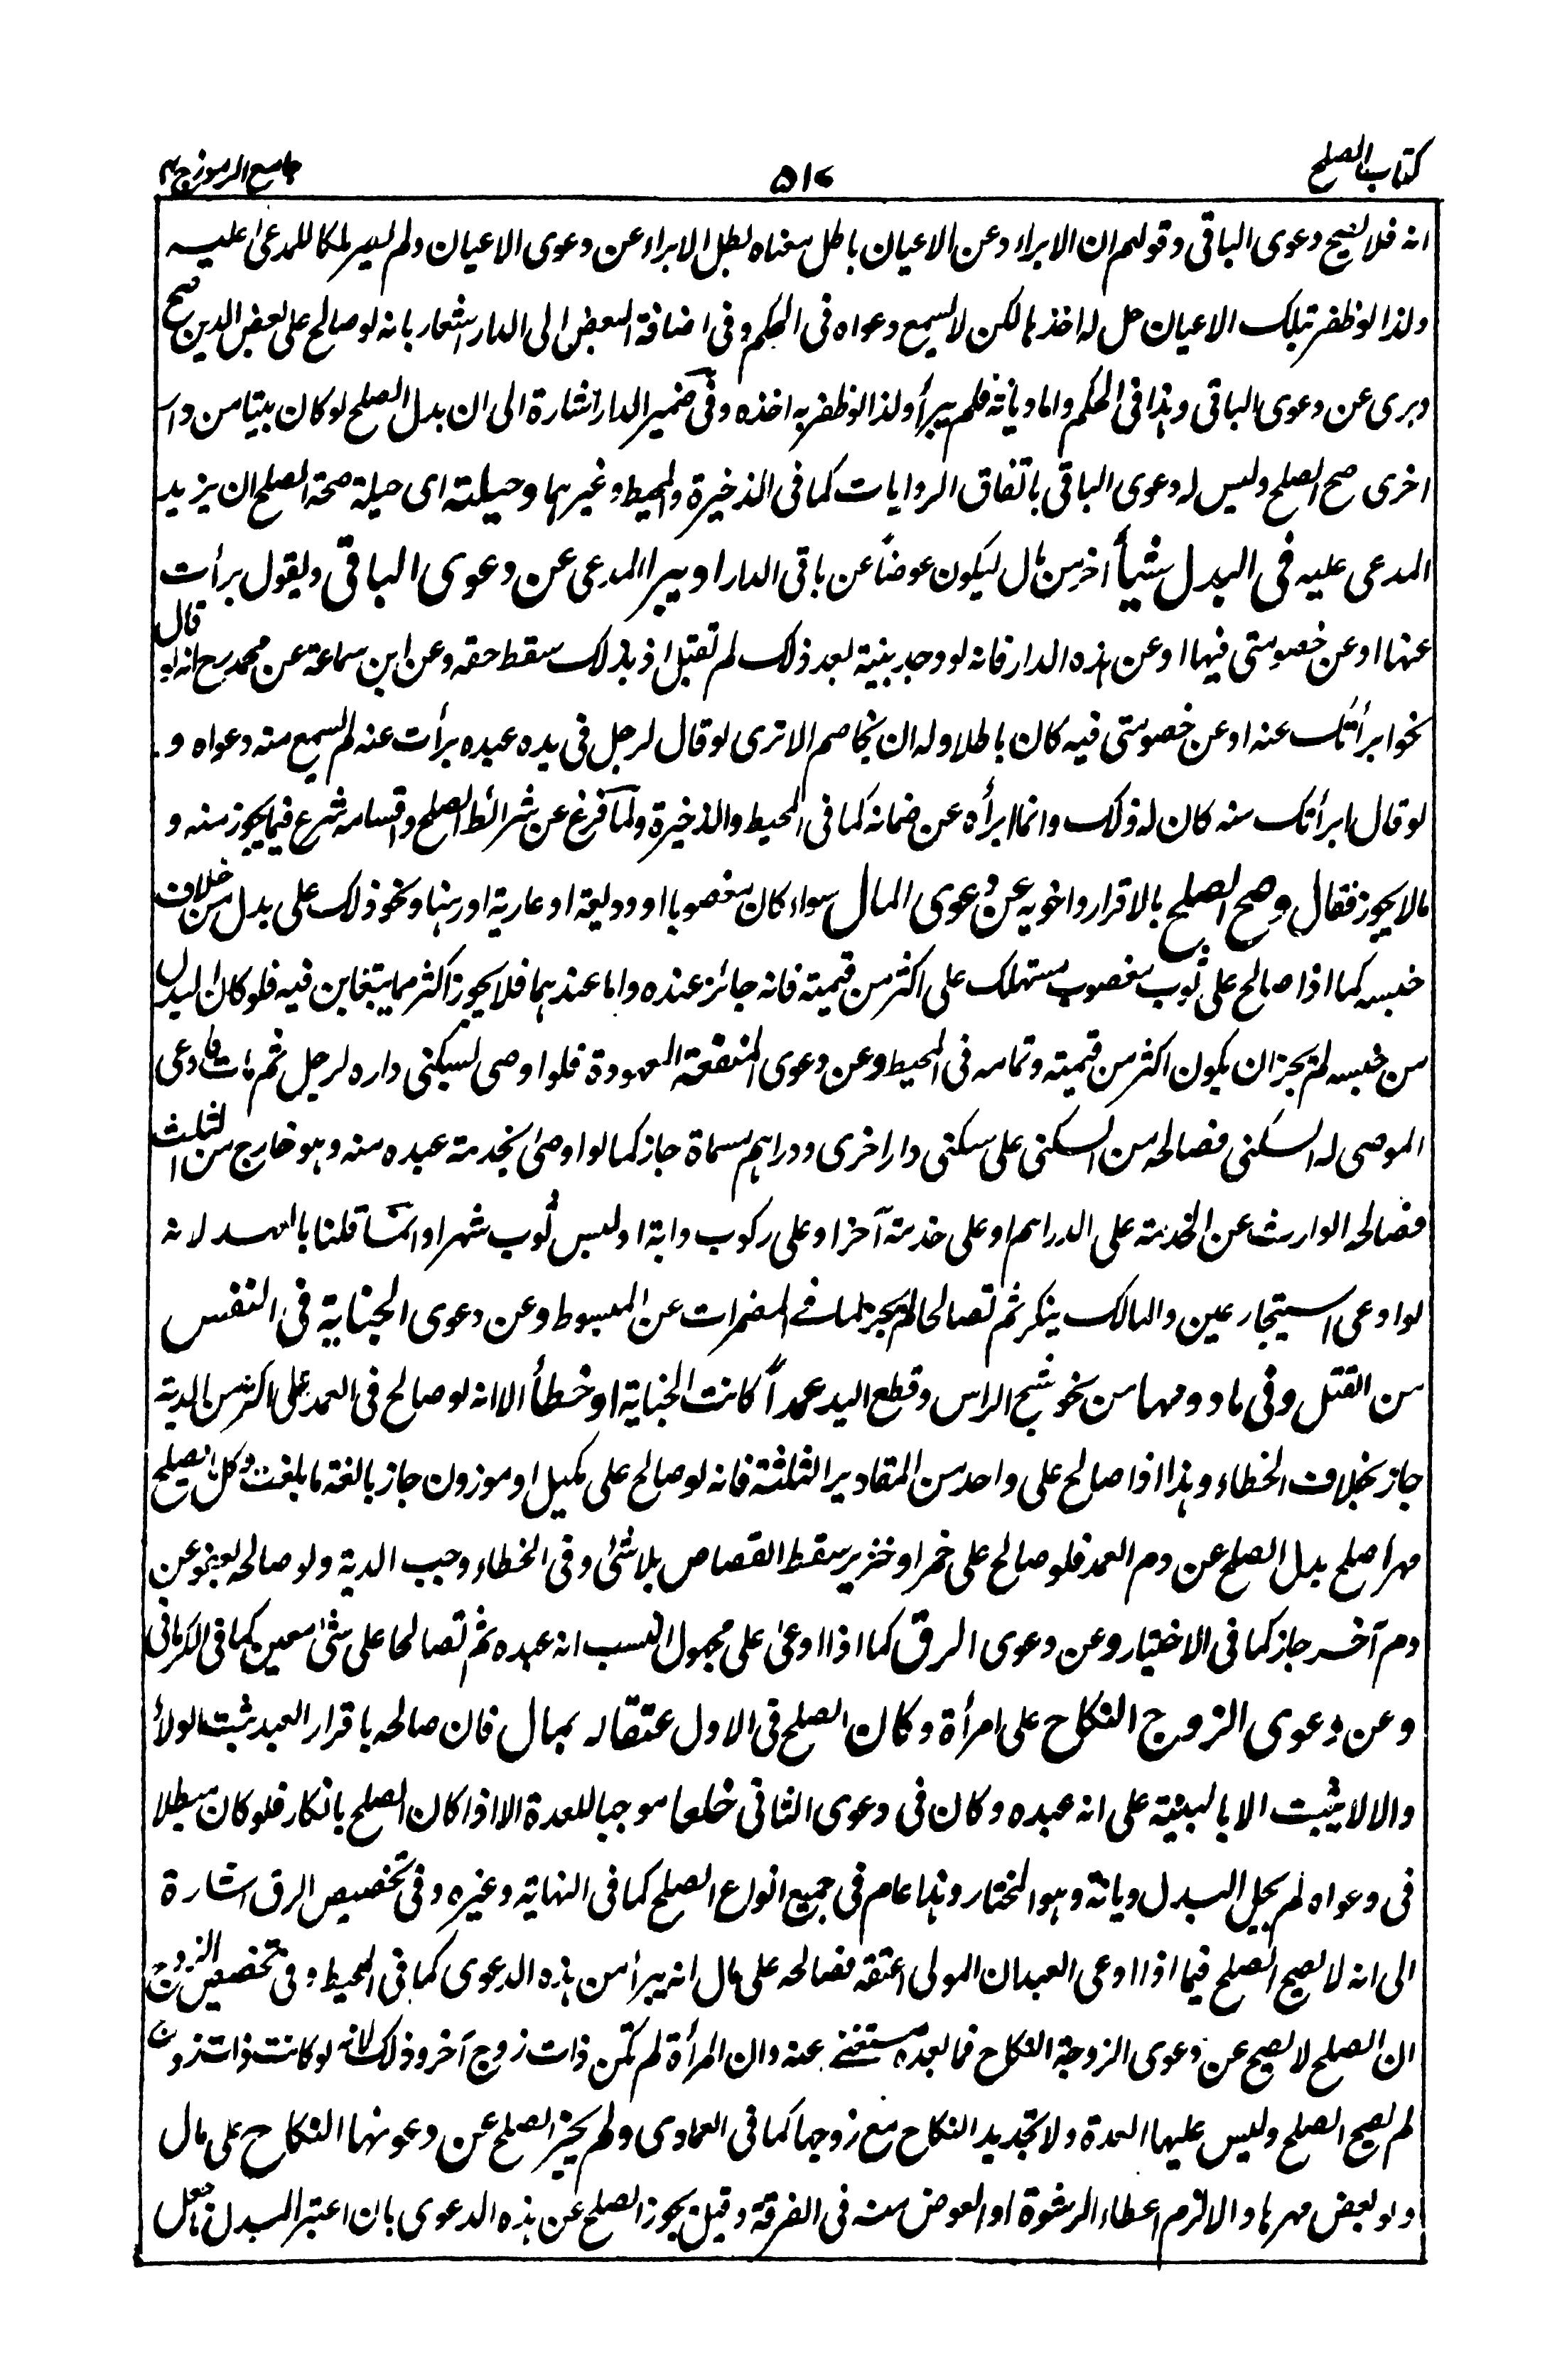 كتاب الصلح
٥١٧
جامع الرموز ج٣
انه فلا يصح دعوى الباقى وقولهم ان الابراء وعن الاعيان باطل معناه بطل الابراء عن دعوى الاعيان ولم يصر ملكا للمدعى عليه
ولذا لو ظفر بتلك الاعيان حل له اخذها لكن لا يسمع دعواه فى الحكم وفى اضافة البعض الى الدار اشعار بانه لو صالح على بعض الدين صح
وبرى عن دعوى الباقى وهذا فى الحكم واما ديانة فلم يبرأ ولذا لو ظفر به اخذه وفى ضمير الدار اشارة الى ان بدل الصلح لو كان بيتا من دار
اخرى صح الصلح وليس له دعوى الباقى باتفاق الروايات كما فى الذخيرة والمحيط وغيرهما وحيلته اى حيلة صحة الصلح ان يزيد
المدعى عليه فى البدل شيأ آخر من مال ليكون عوضاً عن باقى الدار او يبرا المدعى عن دعوى الباقى ويقول برأت
عنها او عن خصومتى فيها او عن هذه الدار فانه لو وجد بينة بعد ذلك لم تقبل اذ بذلك سقط حقه وعن ابن سماعة عن محمد رح انه لو قال
نحوا برأتك عنه او عن خصومتى فيه كان باطلا وله ان يخاصم الا ترى لو قال لرجل فى يده عبده برأت عنه لم يسمع منه دعواه و
لو قال ابرأتك منه كان له ذلك وانما ابرأه عن ضمانه كما فى المحيط والذخيرة ولما فرغ عن شرائط الصلح واقسامه شرع فيما يجوز منه و
مالا يجوز فقال وصح الصلح بالاقرار واخويه عن دعوى المال سواء كان مغصوبا او وديعة او عارية او رهنا ونحو ذلك على بدل من خلاف
جنسه كما اذا صالح على ثوب مغصوب مستهلك على اكثر من قيمته فانه جائز عنده واما عندهما فلا يجوز اكثر مما يتغابن فيه فلو كان البدل
من جنسه لم يجز ان يكون اكثر من قيمته وتمامه فى المحيط وعن دعوى المنفعة المعهودة فلو اوصى بسكنى داره لرجل ثم مات فادعى
الموصى له السكنى فصالحه من السكنى على سكنى دار اخرى ودراهم مسماة جاز كما لو اوصى بخدمة عبده منه وهو خارج من الثلث
فصالحه الوارث عن الخدمة على الدراهم او على خدمة آخر او على ركوب دابة او لبس ثوب شهرا وانما قلنا بالعهد لانه
لو ادعى استيجار عين والمالك ينكر ثم تصالحا لم يجز كما فى المضمرات عن المبسوط وعن دعوى الجناية فى النفس
من القتل وفى ما دونها من نحو شج الراس وقطع اليد عمداً كانت الجناية او خطأ الا انه لو صالح فى العمد على اكثر من الدية
جاز بخلاف الخطاء وهذا اذا صالح على واحد من المقادير الثلثة فانه لو صالح على مكيل او موزون جاز بالغة ما بلغت وكل ما يصلح
مهرا صلح بدل الصلح عن دم العمد فلو صالح على خمر او خنزير سقط القصاص بلا شئ وفى الخطاء وجب الدية ولو صالحه بعفو عن
دم آخر جاز كما فى الاختيار وعن دعوى الرق كما اذا ادعى على مجهول النسب انه عبده ثم تصالحا على شئ معين كما فى الكرمانى
وعن دعوى الزوج النكاح على امرأة وكان الصلح فى الاول عتقا له بمال فان صالحه باقرار العبد يثبت الولأ
والا لا يثبت الا بالبينة على انه عبده وكان فى دعوى الثانى خلعا موجبا للعدة الا اذا كان الصلح بانكار فلو كان مبطلا
فى دعواه لم يحل البدل ديانة وهو المختار وهذا عام فى جميع انواع الصلح كما فى النهاية وغيره وفى تخصيص الرق اشارة
الى انه لا يصح الصلح فيما اذا ادعى العبد ان المولى اعتقه فصالحه على مال انه يبرأ من هذه الدعوى كما فى المحيط وفى تخصيص الزوج
ان الصلح لا يصح عن دعوى الزوجة النكاح فما بعده مستغنى عنه وان المرأة لم تكن ذات زوج آخر وذلك لانه لو كانت ذات زوج
لم يصح الصلح وليس عليها العدة ولا تجديد النكاح مع زوجها كما فى العمادى ولم يجز الصلح عن دعوتها النكاح على مال
ولو بعض مهرها والا لزم اعطاء الرشوة او العوض منه فى الفرقة وقيل يجوز الصلح عن هذه الدعوى بان اعتبر البدل